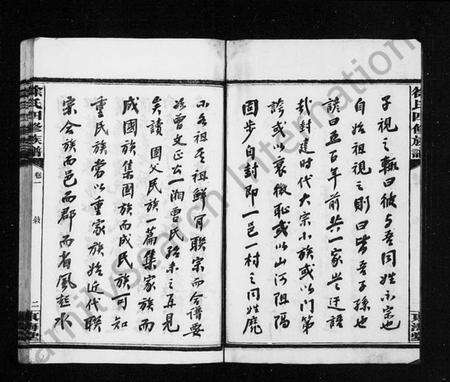 徐氏四修族譜
東海堂
子視之輒曰彼與吾同姓不宗也
自始祖視之則曰皆吾子孫也
諺曰五百年前共一家豈迂語
哉封建時代大宗小族或以門第
誇或以衰微恥或以山河阻隔
固步自封即一邑一村之同姓
不各祖其祖鮮有聯宗而合譜要
曾文正公一湘曾氏
矣讀國父民族一篇集家族而
成國族集國族而成民族可知
重民族當以重家族始近代聯
宗合族而邑而郡而省風起水
徐氏四修族譜
卷一
二
東海堂
FamilySearch International